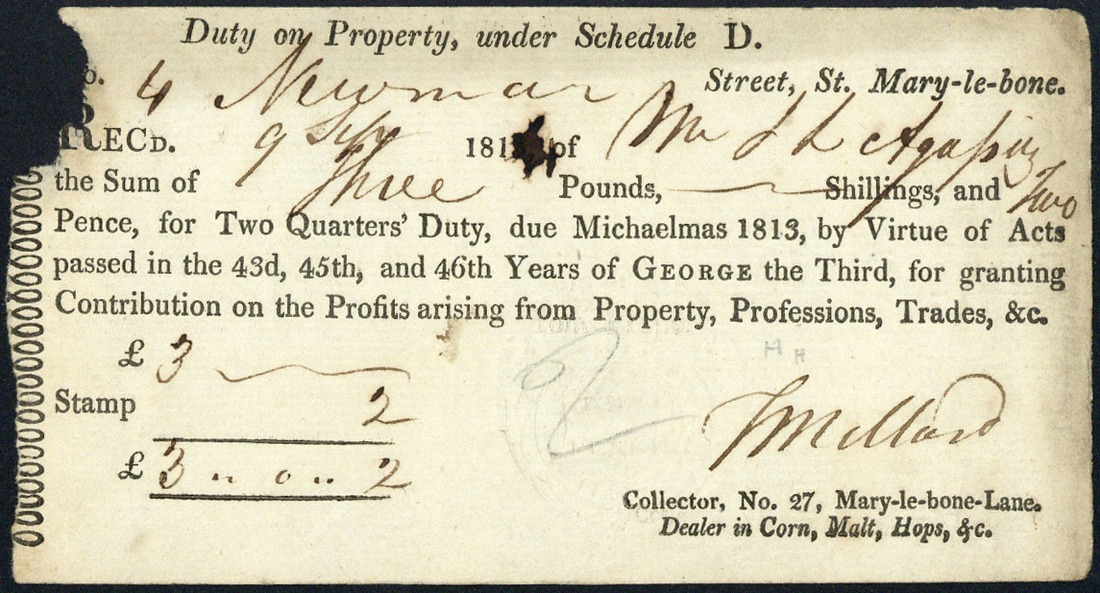 Duty on Property, under Schedule D.
o. 4 Newman Street, St. Mary-le-bone.
RECD. 9 181 of Mr
the Sum of Three Pounds, Shillings, and Two
Pence, for Two Quarters' Duty, due Michaelmas 1813, by Virtue of Acts
passed in the 43d, 45th, and 46th Years of GEORGE the Third, for granting
Contribution on the Profits arising from Property, Professions, Trades, &c.
£ 3
Stamp 2
£ 3 " 0 " 2
Collector, No. 27, Mary-le-bone-Lane.
Dealer in Corn, Malt, Hops, &c.